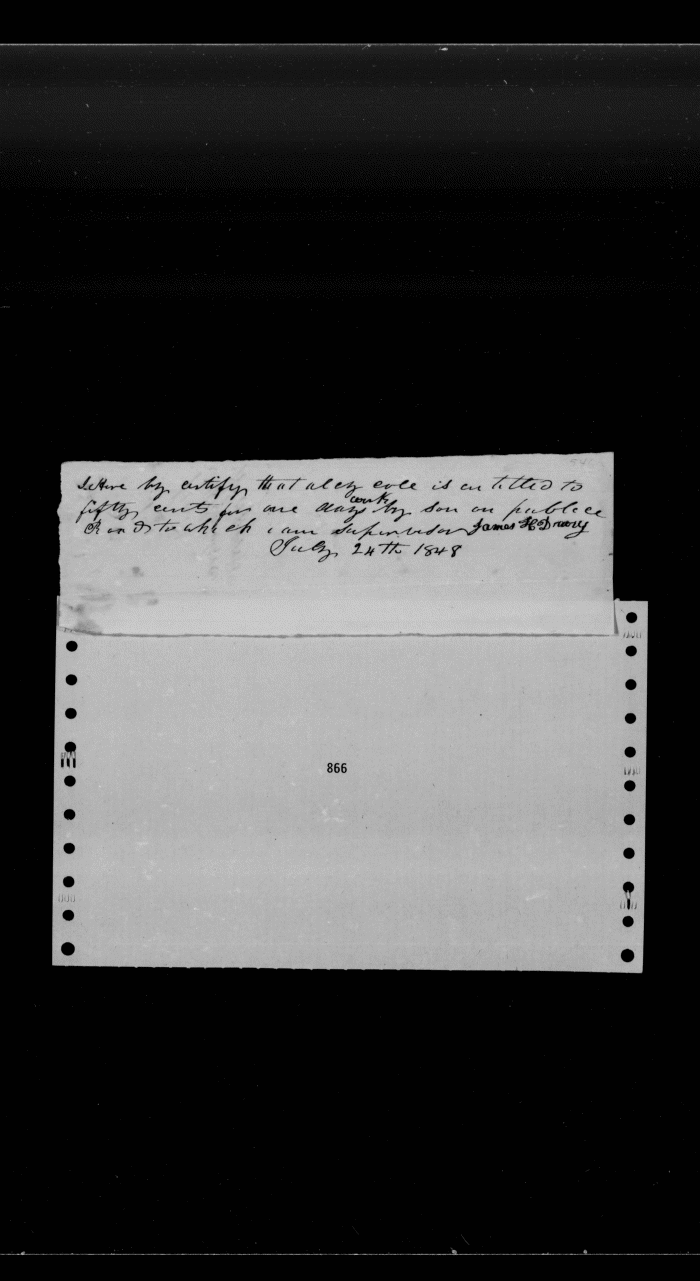 I Here by certify that alcy cole is entitled to
fifty cents for one days work by son on publice
Road to which i am supervisor James H Drury
July 24th 1848
866